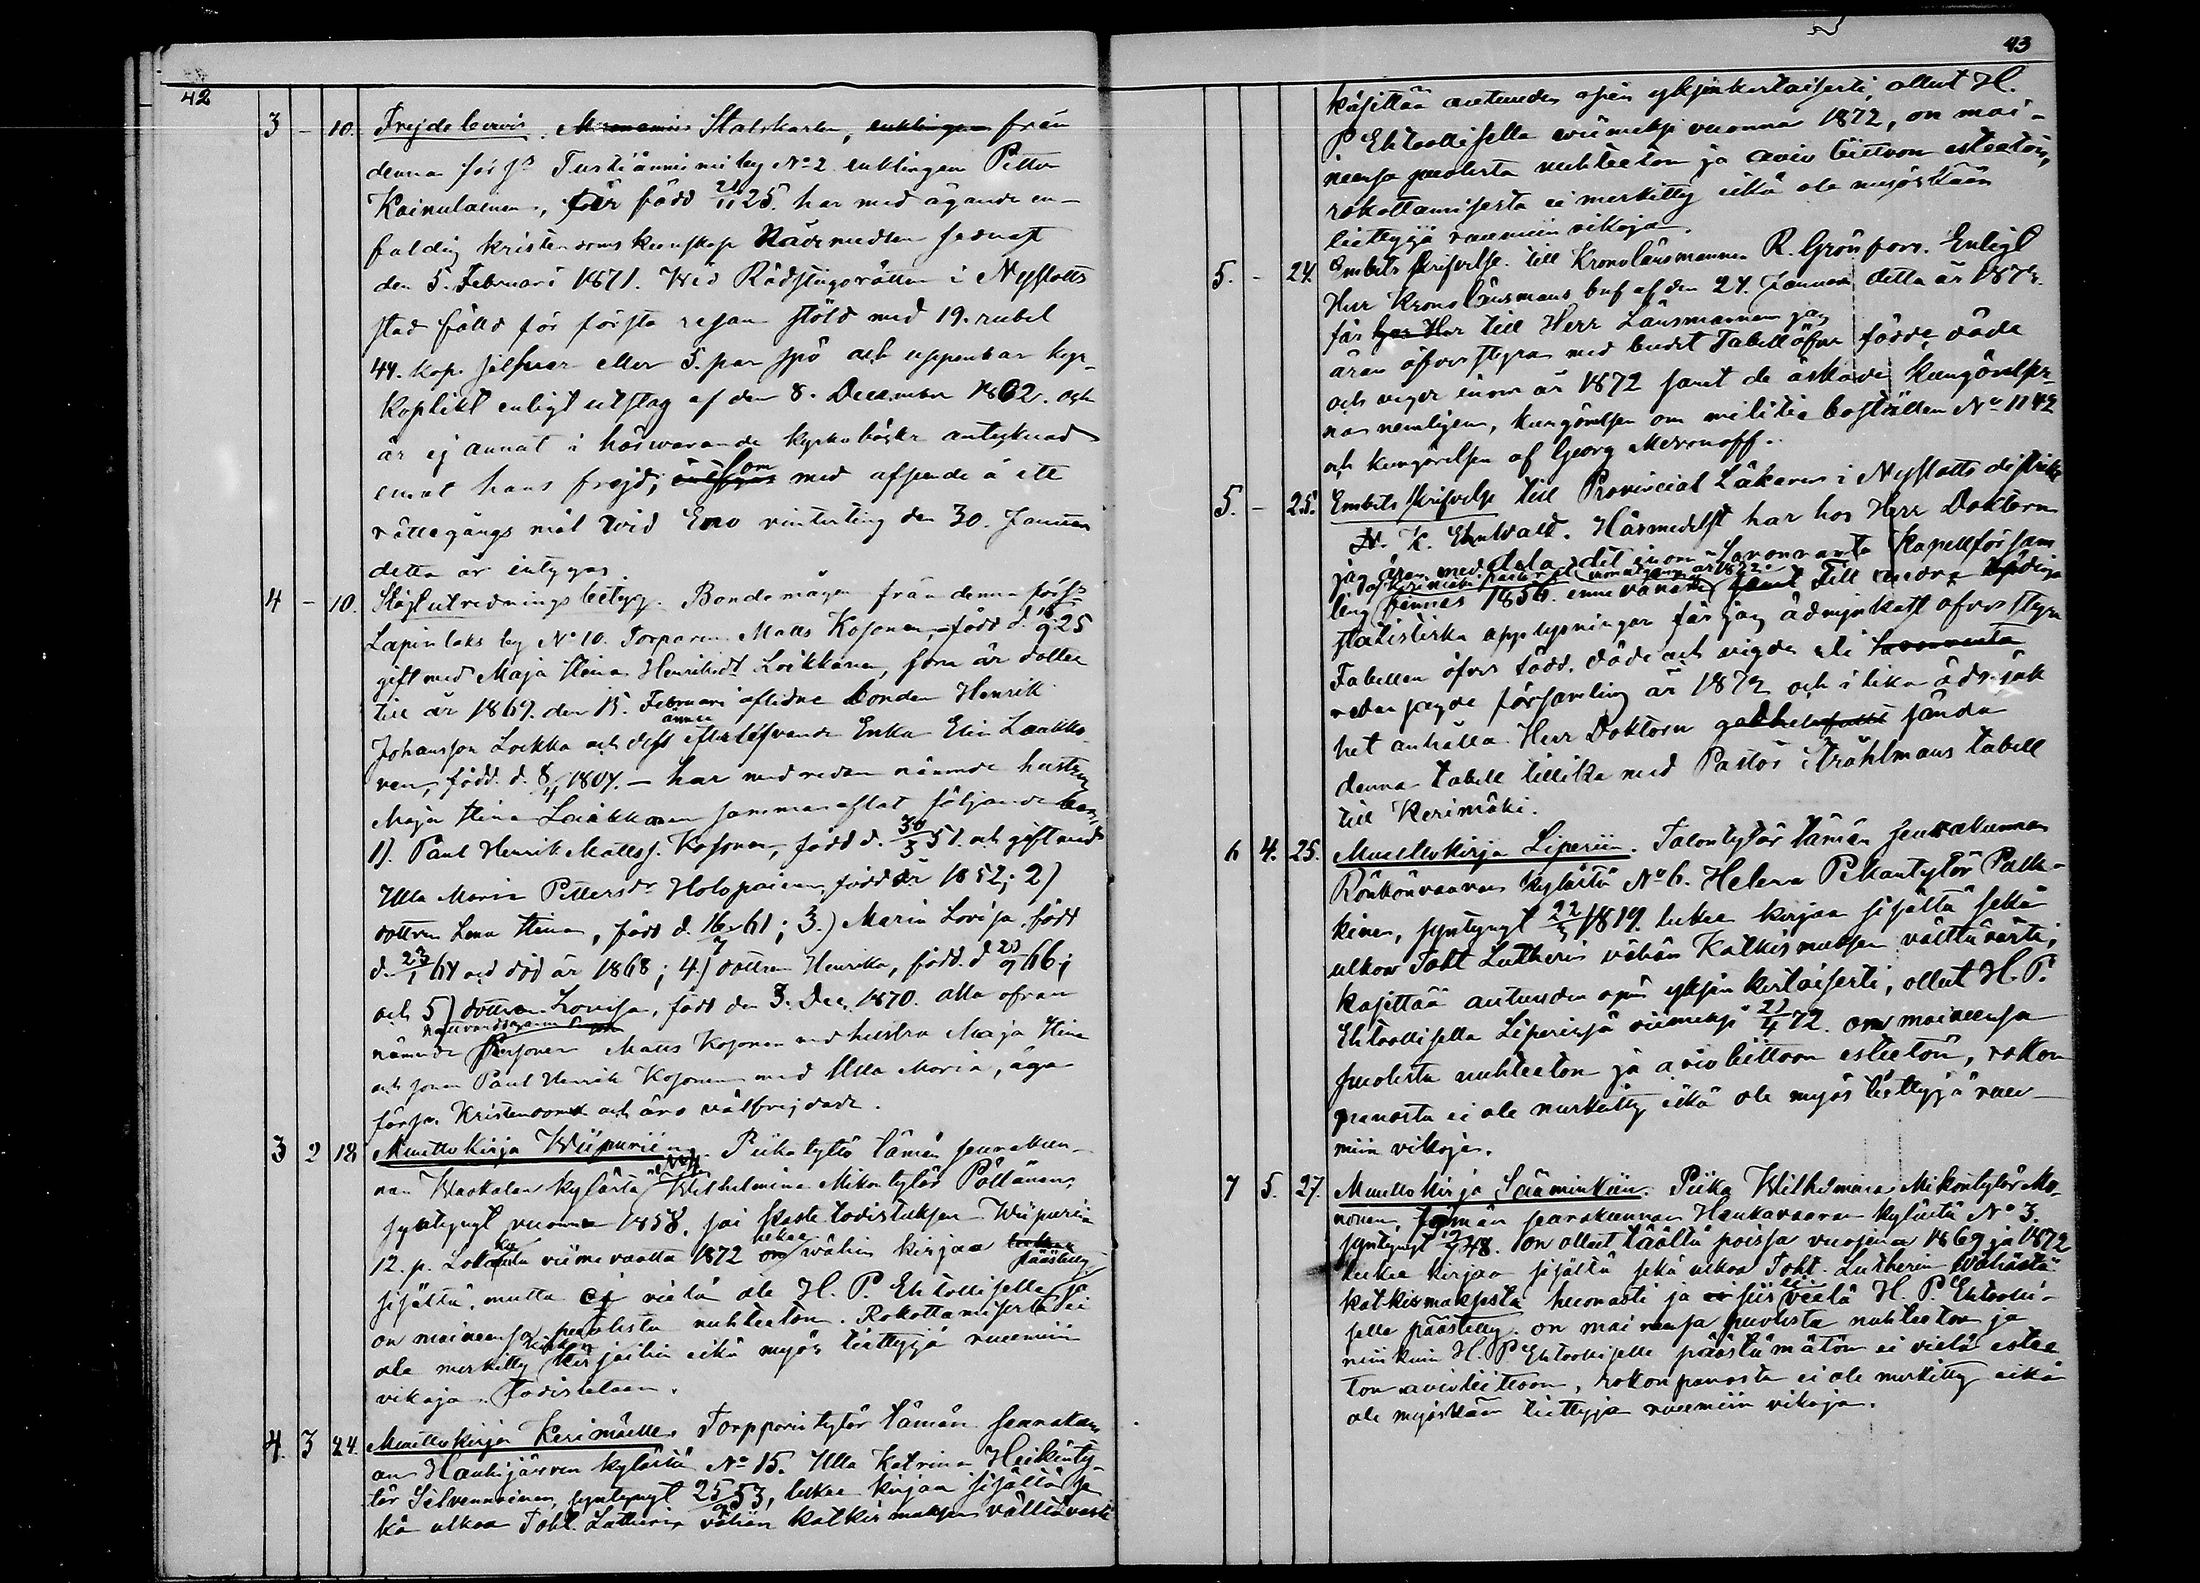 42
3 – 10. Frejdebevis. Statskarlen, enklingen från
denna förs:s Tustiänmi by No 2 enklingen Petter
Kainulainen, född 21/11 25. har med ägande en-
faldig kristendoms kunskap Nattvarden sednast
den 5. Februari 1871. Wid Rådstugurätten i Nyslotts
stad fälld för första resan stöld med 19. rubel
44. kop. silfver eller 5. par spö och uppenbar kyr-
koplikt enligt utslag af den 8. December 1862. och
är ej annat i härwarande kyrkoböcker antecknad
emot hans frejd, som med afseende å ett
rättegångs mål wid Eno vinterting den 30. Januari
detta år intygas
4 – 10. Slägtutredningsbetyg. Bondemågen från denna förs:s
Lapinlaks by No 10. Torparen Matts Kosonen, född d. 25
gift med Maja Stina Henriksdr Loikkanen, som är dotter
till år 1869. den 15. Februari aflidne bonden Henrik
Johansson Loikka och dess ännu efterlefvande Enka Elin Laakko-
nen, född d. 8/4 1804. – har med redan nämnde hustru
Maja Stina Loikkanen sammanaflat följande barn
1). Paul Henrik Mattss. Kosonen, född d. 30/3 51. och gift med
Ulla Maria Pettersdr Holopainen, född år 1852; 2)
dottren Lena Stina, född d. 16/7 61; 3.) Maria Lovisa, född
d. 23/1 64 och död år 1868; 4.) dottren Henrika, född. d 20/9 66;
och 5) dottren Lovisa, född den 3. Dec. 1870. alla ofvan
nämnde personer Matts Kosonen med hustru Maja Stina
och sonen Paul Henrik Kosonen med Ulla Maria, äga
förs:s Kristendom och äro välfrejdade.
3 2 18 Muuttokirja Wiipuriin. Piikatyttö tämän seurakun-
nan Waskalan kylästä Wilhelmina Mikontytär Pöllänen,
syntynyt vuonna 1858. sai Todistuksen Wiipuriin
12. p. Lokakuuta viime vuotta 1872 lukee wähin kirjaa
sisältä, mutta ei vielä ole H. P. Ehtoolliselle päästetty ja
on maineensa puolesta nuhteeton. Rokottamisesta ei
ole merkitty kirkonkirjoihin eikä myös tiettyjä ruumiin
vikoja. Todistetaan.
4. 3 24. Muuttokirja Kerimäelle. Torpparintytär tämän seurakun-
an Hauhijärven kylästä No 15. Ulla Katrina Heikinty-
tär Silvennoinen, syntynyt 25/9 53, lukee kirjaa sisältä se-
kä ulkoa Toht. Lutherin vähän katkismuksen välttävästi
43
käsittää autuuden opin yksinkertaisesti, ollut H.
P. Ehtoollisella wiimeksi vuonna 1872, on mai-
neensa puolesta nuhteeton ja avioliittoon esteetön,
rokottamisesta ei merkitty eikä ole myöskään
tiettyjä ruumiin vikoja.
5. – 24. Embets skrifvelse till Kronolänsmannen R. Grönfors. Enligt
Herr Kronolänsmans bref af den 24. Januari detta år 1873.
får till Herr Länsmannen jag
äran öfverstyra med budet Tabell öfver födde, döde
och vigde inom år 1872 samt de äskade kungörelser-
na nemligen, kungörelsen om militie boställen No 1142
och kungörelsen af Georg Mevonoff.
5. – 25. Embets skrifvelse till Provincial Läkaren i Nyslotts distrikt
K. Ehnwald. Härmedelst har hos Herr Doktorn
jag äran meddela det inom Savonranta kapellförsam-
ling finnes 1856. innevånare samt Till andra
statistiska upplysningar får jag ödmjukast öfverstyra
Tabellen öfver född. döde och vigde uti
redan sagde församling år 1872 och i lika ödmjuk
het anhålla Herr Doktorn sända
denna tabell tillika med Pastor Stråhlmans tabell
till Kerimäki.
6 4. 25. Muuttokirja Liperiin. Talontytär tämän seurakunnan
Rönkönvaaran kylästä No 6. Helena Pekantytär Pakk-
kinen, syntynyt 22/5 1819. lukee kirjaa sisältä sekä
ulkoa Toht. Lutherin vähän Katkismuksen välttävästi,
käsittää autuuden opin yksinkertaisesti, ollut H. P.
Ehtoollisella Liperissä viimeksi 21/4 72. on maineensa
puolesta nuhteeton ja avioliittoon esteetön, rokon
panosta ei ole merkitty eikä ole myös tiettyjä ruu-
miin vikoja.
7 5. 27. Muuttokirja Sääminkiin. Piika Wilhelmiina Mikontytär Mo-
nonen, tämän seurakunnan Haukavaaran kylästä No 3.
syntynyt 48. on ollut täältä poissa vuosina 1869 ja 1872
lukee kirjaa sisältä sekä ulkoa Toht. Lutherin vähästä
katkismuksesta huonosti ja siis ei vielä H. P. Ehtooli-
selle päästetty. on maineensa puolesta nuhteeton ja
niinkuin H. P. Ehtoolliselle päästämätön ei vielä estee
tön avioliittoon, rokon panosta ei ole merkitty eikä
ole myöskään tiettyjä ruumiin vikoja.